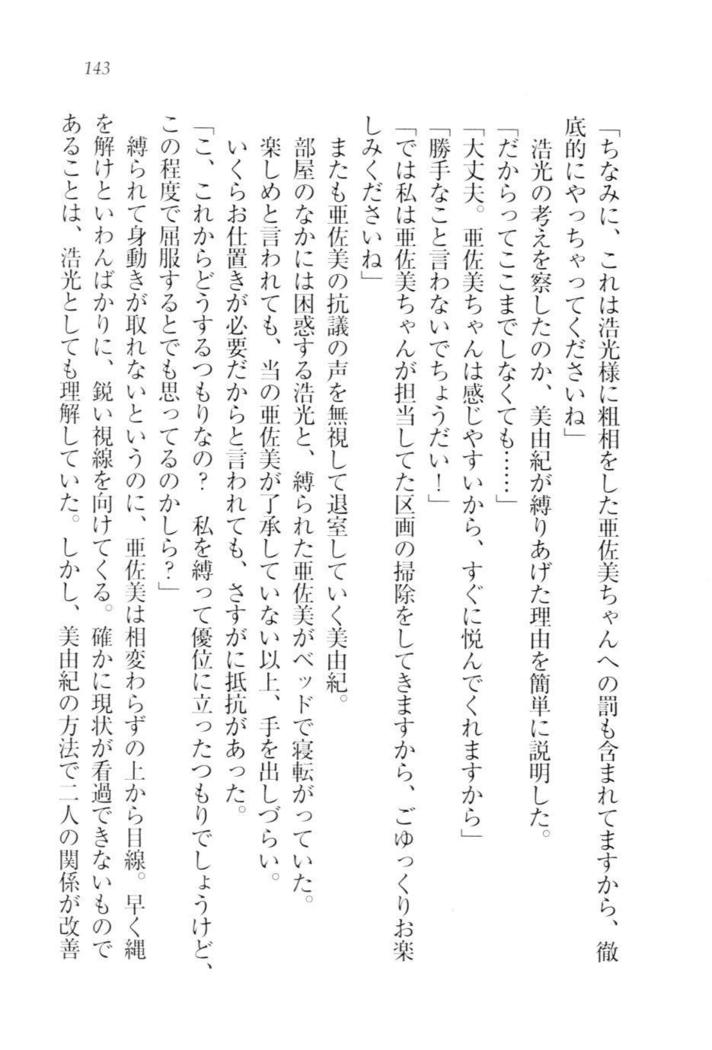 143
「ちなみに、これは浩光様に粗相をした亜佐美ちゃんへの罰も含まれてますから、徹
底的にやっちゃってくださいね」
浩光の考えを察したのか、美由紀が縛りあげた理由を簡単に説明した。
「だからってここまでしなくても……」
「大丈夫。亜佐美ちゃんは感じやすいから、すぐに悦んでくれますから」
「勝手なこと言わないでちょうだい！」
「では私は亜佐美ちゃんが担当してた区画の掃除をしてきますから、ごゆっくりお楽
しみくださいね」
またも亜佐美の抗議の声を無視して退室していく美由紀。
部屋のなかには困惑する浩光と、縛られた亜佐美がベッドで寝転がっていた。
楽しめと言われても、当の亜佐美が了承していない以上、手を出しづらい。
いくらお仕置きが必要だからと言われても、さすがに抵抗があった。
「こ、これからどうするつもりなの？　私を縛って優位に立ったつもりでしょうけど、
この程度で屈服するとでも思ってるのかしら？」
縛られて身動きが取れないというのに、亜佐美は相変わらずの上から目線。早く縄
を解けといわんばかりに、鋭い視線を向けてくる。確かに現状が看過できないもので
あることは、浩光としても理解していた。しかし、美由紀の方法で二人の関係が改善